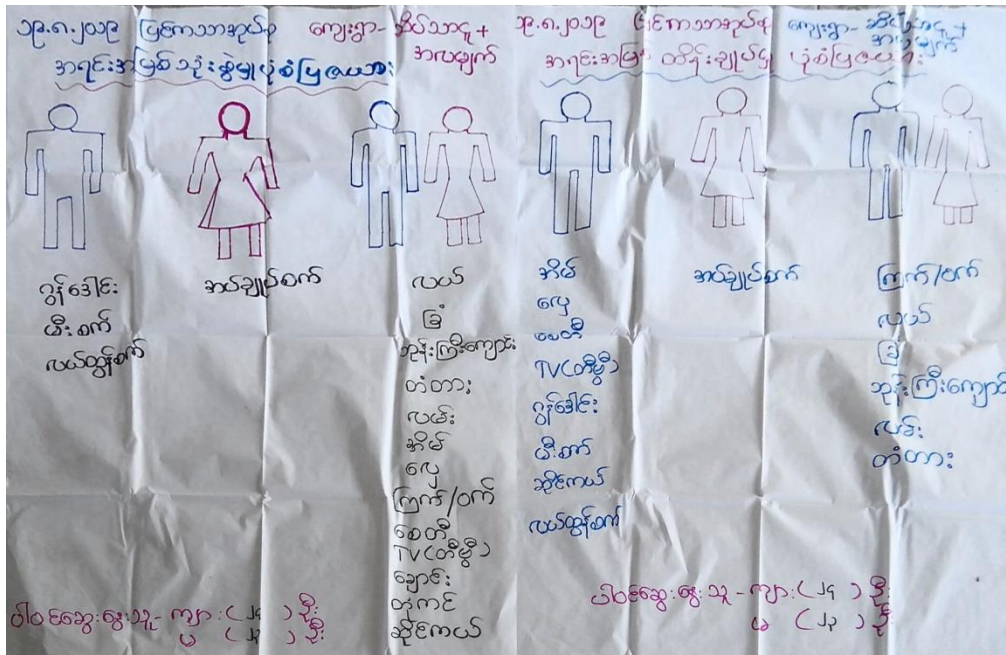 ၁၉.၈.၂၀၁၉ ပြင်ကသာအုပ်စု ကျေးရွာ- အိပ်သာယူ +
အလမျှက်
အရင်းအမြစ်သုံးစွဲမှုပုံစံပြဇယား
ဂွန်ဒေါင်း
မီးစက်
လယ်ထွန်စက်
အပ်ချုပ်စက်
လယ်
ခြံ
ဘုန်းကြီးကျောင်း
တံတား
လမ်း
အိမ်
လှေ
ကြက်/ဝက်
စေတီ
TV(တီဗွီ)
ချောင်း
တံုကင်
ဆိုင်ကယ်
ပါဝင်ဆွေးနွေးသူ- ကျား (၂၄) ဦး
မ (၂၃) ဦး
၁၉.၈.၂၀၁၉ ပြင်ကသာအုပ်စု ကျေးရွာ-
အလမျှက်
အရင်းအမြစ် ထိန်းချုပ်မှု ပုံစံပြဇယား
အိမ်
လှေ
စေတီ
TV(တီဗွီ)
ဂွန်ဒေါင်း
မီးစက်
ဆိုင်ကယ်
လယ်ထွန်စက်
အပ်ချုပ်စက်
ကြက်/ဝက်
လယ်
ခြံ
ဘုန်းကြီးကျောင်း
လမ်း
တံတား
ပါဝင်ဆွေးနွေးသူ - ကျား (၂၄) ဦး
မ (၂၃) ဦး